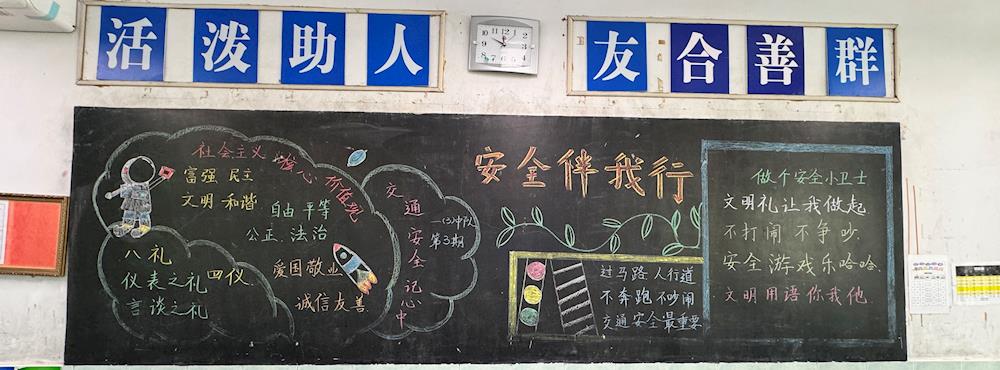 活泼助人
友合善群
社会主义核心价值观
富强 民主
文明 和谐
自由 平等
公正 法治
爱国 敬业
诚信友善
八礼 四仪
仪表之礼
言谈之礼
交通安全记心中
一(3)中队
第3期
安全伴我行
过马路 人行道
不奔跑 不吵闹
交通安全最重要
做个安全小卫士
文明礼让我做起
不打闹 不争吵
安全游戏乐哈哈
文明用语你我他